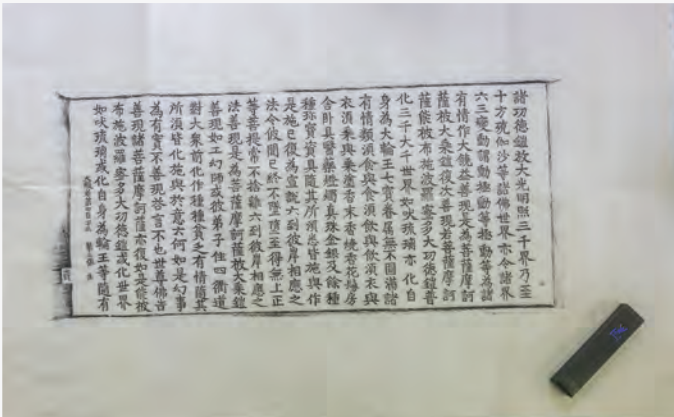 諸功德鎧放大光明照三千界乃至
十方殑伽沙等諸佛世界亦令諸界
六三變動謂動極動等極動等為諸
有情作大饒益善現是為菩薩摩訶
薩被大乘鎧復次善現若菩薩摩訶
薩能被布施波羅蜜多大功德鎧普
化三千大千世界如吠琉璃亦化自
身為大輪王七寶眷屬無不圓滿諸
有情類須食與食須飲與飲須衣與
衣須乘與乘塗香末香燒香花鬘房
舍卧具醫藥燈燭真珠金銀及餘種
種珍寶資具隨其所須悉皆施與作
是施已復為宣說六到彼岸相應之
法令彼聞已終不墜墮至得無上正
等菩提常不捨離六到彼岸相應之
法善現是為菩薩摩訶薩被大乘鎧
善現如工幻師或彼弟子住四衢道
對大衆前化作種種貧乏有情隨其
所須皆化施與於意云何如是幻事
為有實不善現荅言不也世尊佛言
善現諸菩薩摩訶薩亦復如是能被
布施波羅蜜多大功德鎧或化世界
如吠琉璃或化自身為輪王等隨有